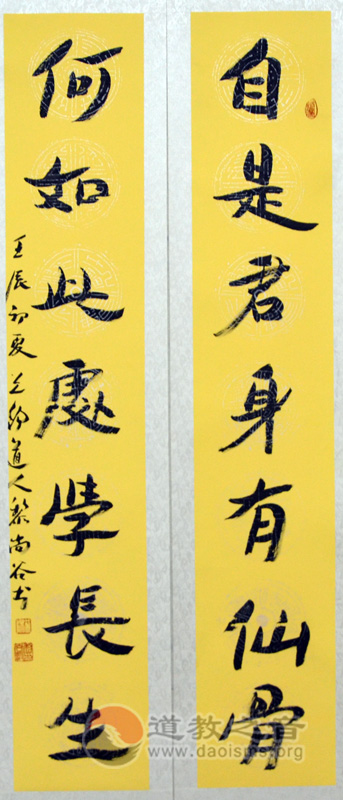 自是君身有仙骨
何如此處學長生
壬辰初夏 道人黎尚谷书
道教之音
www.daoisms.org